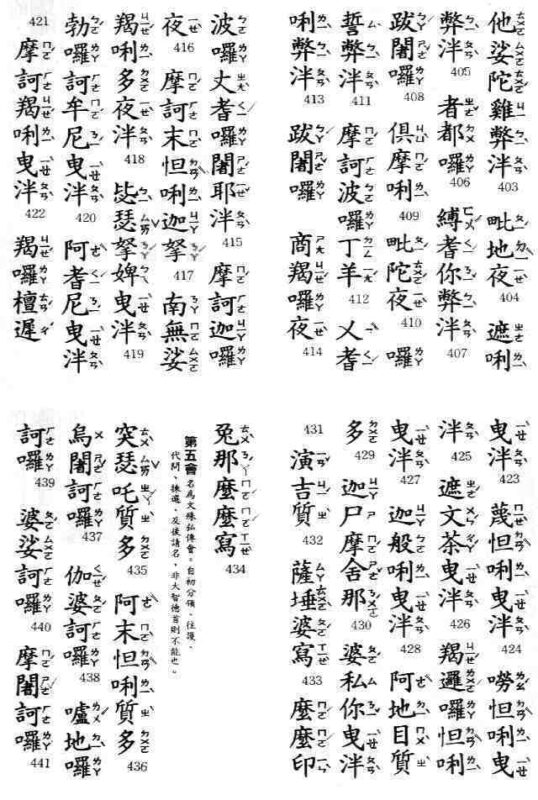 他娑陀雞弊泮 403 毗地夜 404 遮唎
弊泮 405 者都囉 406 縛耆你弊泮 407
跋闍囉 408 俱摩唎 409 毗陀夜 410 囉
誓弊泮 411 摩訶波囉丁羊 412 乂耆
唎弊泮 413 跋闍囉商羯囉夜 414
波囉丈耆囉闍耶泮 415 摩訶迦囉
夜 416 摩訶末怛唎迦拏 417 南無娑
羯唎多夜泮 418 毖瑟拏婢曳泮 419
勃囉訶牟尼曳泮 420 阿耆尼曳泮
421 摩訶羯唎曳泮 422 羯囉檀遲
曳泮 423 蔑怛唎曳泮 424 嘮怛唎曳
泮 425 遮文茶曳泮 426 羯邏囉怛唎
曳泮 427 迦般唎曳泮 428 阿地目質
多 429 迦尸摩舍那 430 婆私你曳泮
431 演吉質 432 薩埵婆寫 433 麼麼印
兔那麼麼寫 434
第五會 名為文殊弘傳會。自初分領、往護、
代問、揀選、及後請名、非大智德首則不能也。
突瑟吒質多 435 阿末怛唎質多 436
烏闍訶囉 437 伽婆訶囉 438 嚧地囉
訶囉 439 婆娑訶囉 440 摩闍訶囉 441